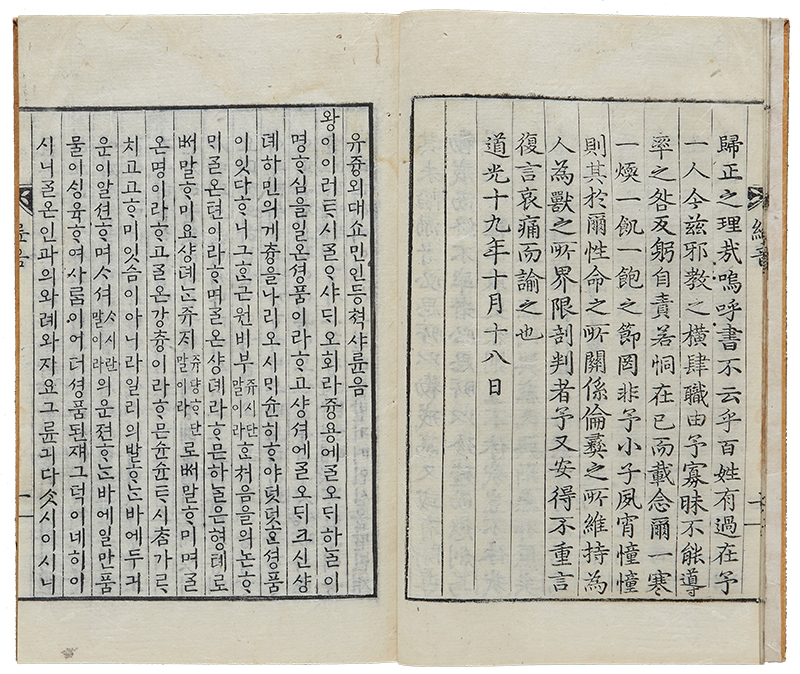 綸音
歸正之理哉嗚呼書不云乎百姓有過在予
一人今茲邪教之橫肆職由予寡昧不能導
率之咎反躬自責若恫在己而載念爾一寒
一煖一飢一飽之節罔非予小子夙宵憧憧
則其於爾性命之所關係倫彝之所維持為
人為獸之所界限剖判者予又安得不重言
復言哀痛而諭之也
道光十九年十月十八日
유즁외대쇼민인등쳑샤륜음
왕이이러ᄐᆞ시ᄀᆞᆯᄋᆞ샤ᄃᆡ오회라즁용에ᄀᆞᆯ오ᄃᆡ하ᄂᆞᆯ이
명ᄒᆞ심을일온셩품이라ᄒᆞ고샹셔에ᄀᆞᆯ오ᄃᆡ크신샹
뎨하민의게츙을나리오시ᄆᆡ슌히ᄒᆞ야덧덧ᄒᆞᆫ셩품
이잇다ᄒᆞ니그ᄒᆞᆫ근원비부쥬시단말이라ᄒᆞᆫ처음을의논ᄒᆞ
ᄆᆡᄀᆞᆯ온텬이라ᄒᆞ며ᄀᆞᆯ온샹뎨라ᄒᆞᄆᆞᆫ하ᄂᆞᆯ은형톄로
ᄡᅥ말ᄒᆞ미요샹뎨ᄂᆞᆫ쥬ᄌᆡ쥬쟝ᄒᆞ단말이라로ᄡᅥ말ᄒᆞ미며ᄀᆞᆯ
온명이라ᄒᆞ고ᄀᆞᆯ온강츙이라ᄒᆞᄆᆞᆫ슌슌ᄐᆞ시가ᄅᆞ
치고고ᄒᆞᄆᆡ잇슴이아니라일리의발ᄒᆞᄂᆞᆫ바에두긔
운이알션ᄒᆞ며ᄉᆞ셔ᄉᆞ시란말이라의운젼ᄒᆞᄂᆞᆫ바에일만품
물이ᄉᆡᆼ육ᄒᆞ여사ᄅᆞᆷ이어더셩품된ᄌᆡ그덕이네히이
시니ᄀᆞᆯ온인과의와례와지요그륜긔다ᄉᆞᆺ시이시니
륜음